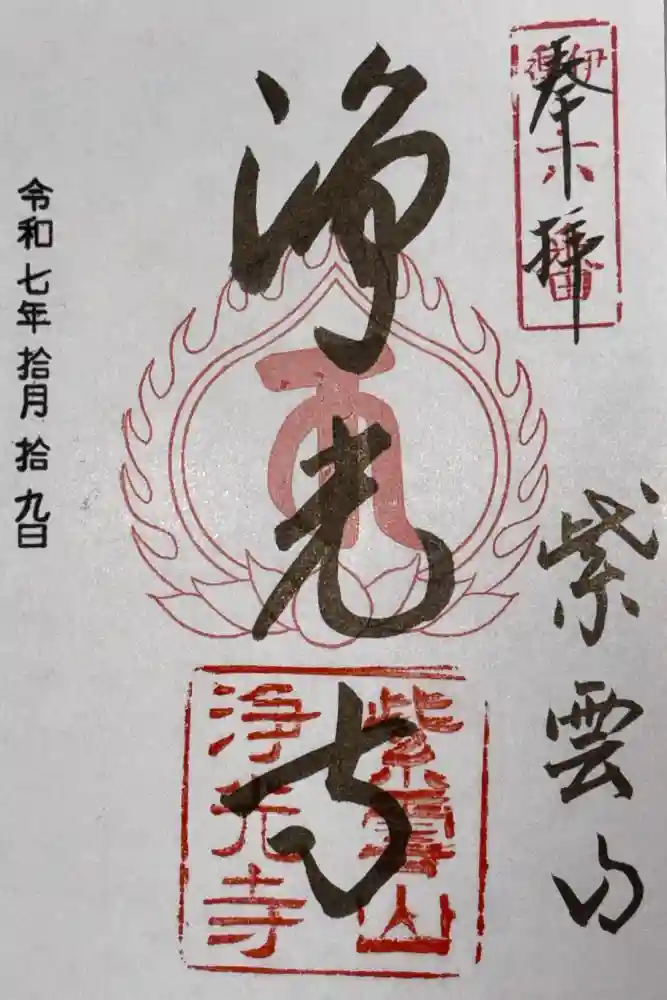 奉拝
伊
六番
紫雲山
浄光寺
紫雲山
浄光寺
令和七年拾月拾九日